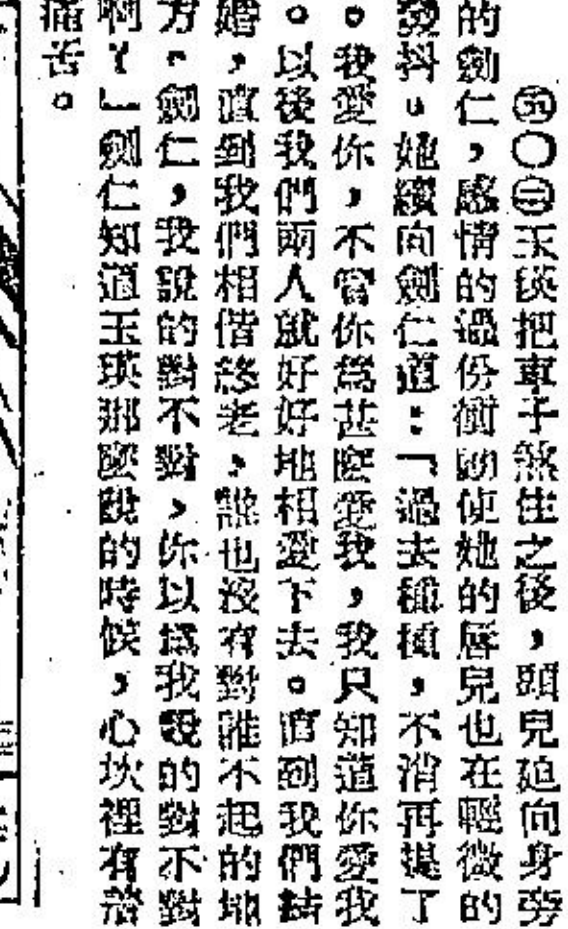 ㊄〇㊂玉瑛把車子煞住之後,頭兒迎向身旁
的劍仁,感情的過份衝動使她的唇兒也在輕微的
發抖。她續向劍仁道:「過去種種,不消再提了
。我愛你,不管你爲甚麼愛我,我只知道你愛我
。以後我們兩人就好好地相愛下去。直到我們結
婚,直到我們相偕終老,誰也沒有對誰不起的地
方。劍仁,我說的對不對,你以爲我說的對不對
啊?」劍仁知道玉瑛那麼說的時候,心坎裡有着
痛苦。